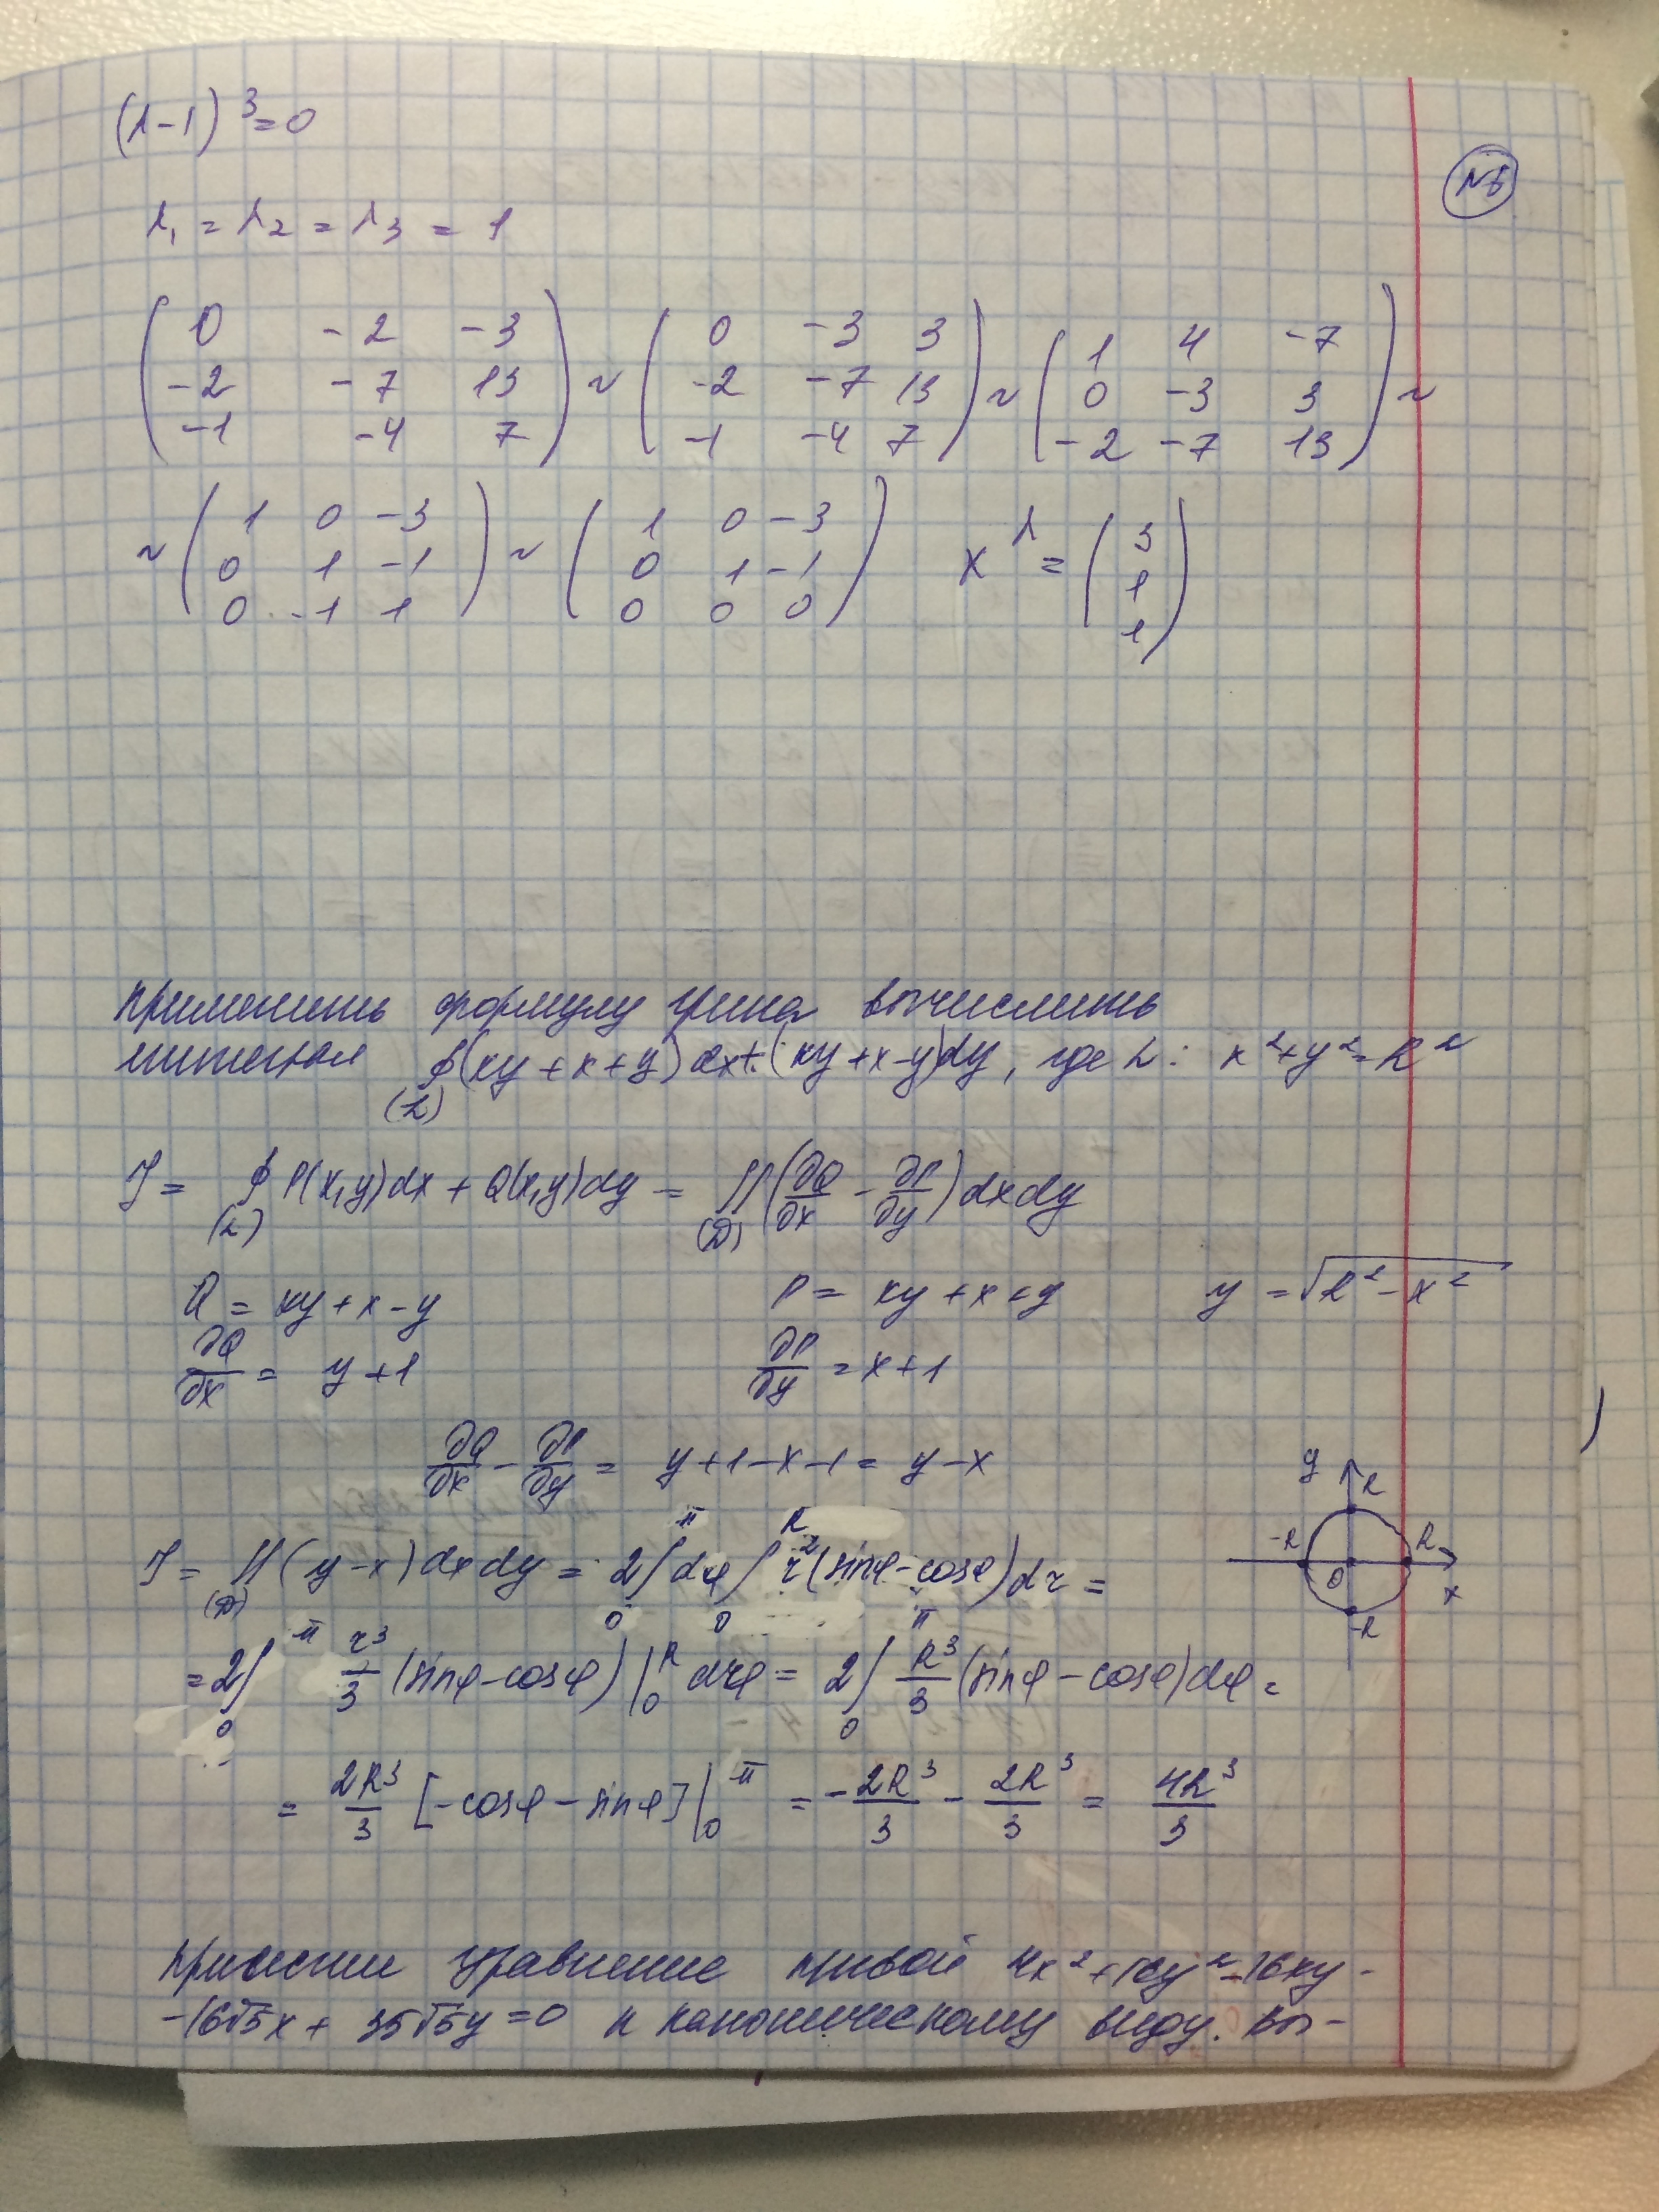 (λ-1)³=0
№6
λ₁ = λ₂ = λ₃ = 1
(0 -2 -3; -2 -7 13; -1 -4 7) ~ (0 -3 3; -2 -7 13; -1 -4 7) ~ (1 4 -7; 0 -3 3; -2 -7 13) ~
~ (1 0 -3; 0 1 -1; 0 -1 1) ~ (1 0 -3; 0 1 -1; 0 0 0) x^λ = (3; 1; 1)
Применить формулу грина вычислить
интеграл ∮(L) (xy+x+y)dx + (xy+x-y)dy, где L: x²+y²=R²
J = ∮(L) P(x,y)dx + Q(x,y)dy = ∬(D) (∂Q/∂x - ∂P/∂y) dxdy
Q = xy+x-y P = xy+x+y y = √(R²-x²)
∂Q/∂x = y+1 ∂P/∂y = x+1
∂Q/∂x - ∂P/∂y = y+1-x-1 = y-x
y R -R R 0 x -R
J = ∬(D) (y-x)dxdy = 2∫₀^π dφ ∫₀^R r²(sinφ-cosφ)dr =
= 2∫₀^π r³/3 (sinφ-cosφ)|₀^R dφ = 2∫₀^π R³/3 (sinφ-cosφ)dφ =
= 2R³/3 [-cosφ-sinφ]|₀^π = -2R³/3 - 2R³/3 = 4R³/3
Привести уравнение кривой 4x²+16y²-16xy-
-16√5x + 35√5y=0 к каноническому виду. Вы-